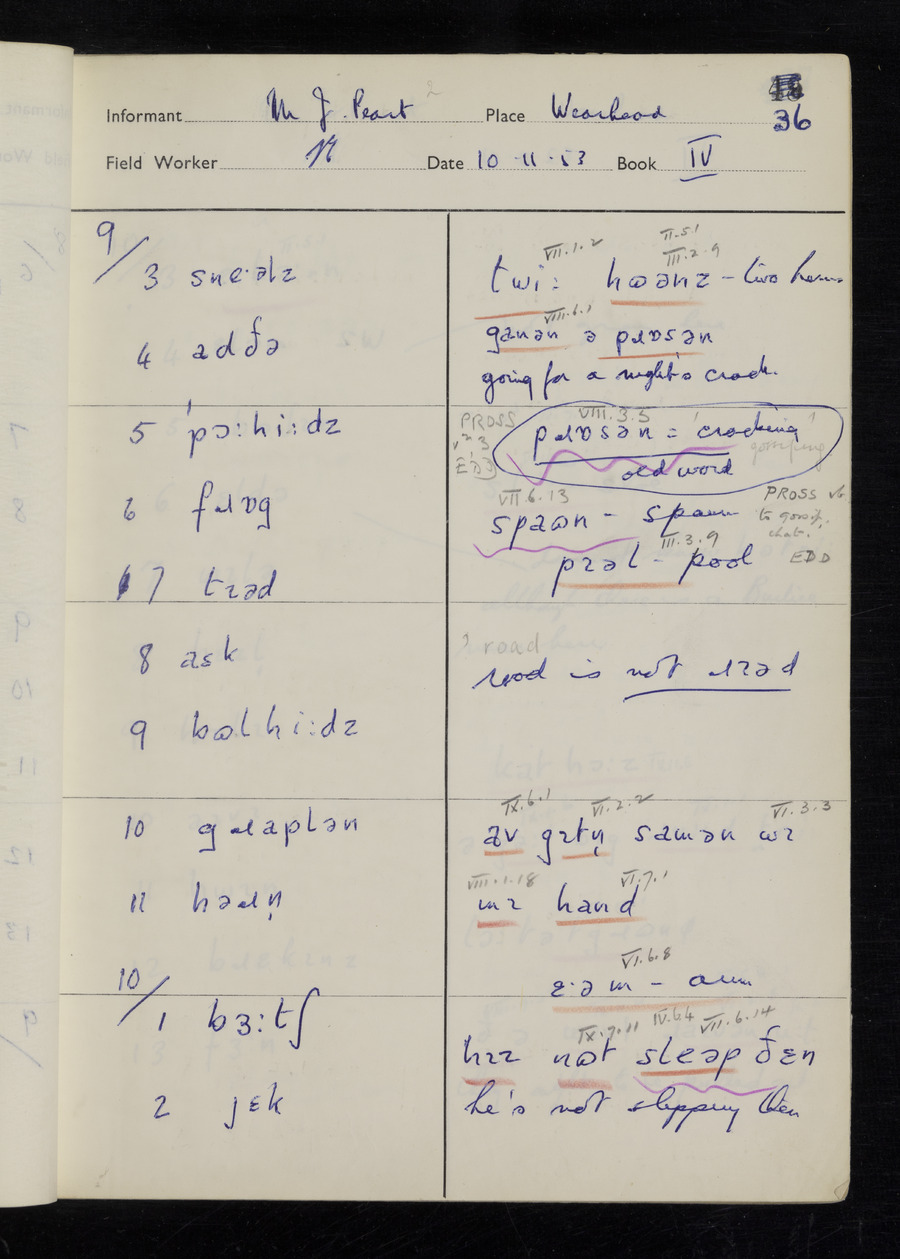 36
Informant Mr J. Peart Place Wearhead
Field Worker Date 10·11·53 Book IV
9/
3 sneˑəlz
4 adðə
5 'pɔ:hi:dz
6 fɹɒg
7 tɪəd
8 ask
9 bɷlhi:dz
10 gɹaplən
11 həɹn̩
10/
1 bɜ:tʃ
2 jɛk
VII.1.2 II.5.1
III.2.9
twi: hɷənz - two horns
VIII.6.1
ganən ə pɹɒsən
going for a night's crack.
PROSS VIII.3.5
vb 3 pɹɒsən = 'cracking'
EDD old word gossiping
VII.6.13 PROSS vb
spaɷn - spawn to gossip,
III.3.9 chat.
pɪəl - pool EDD
? road
rood is not ɹɪəd
IX.6.1 VI.2.2 VI.3.3
av gɪtn̩ samən wɪ
VIII.1.18 VI.7.1
mɪ hand
VI.6.8
ɛ·əm - arm
IX.7.11 IV.6.4 VII.6.14
hɪz nɷt sleəp ðɛn
he's not slippery then